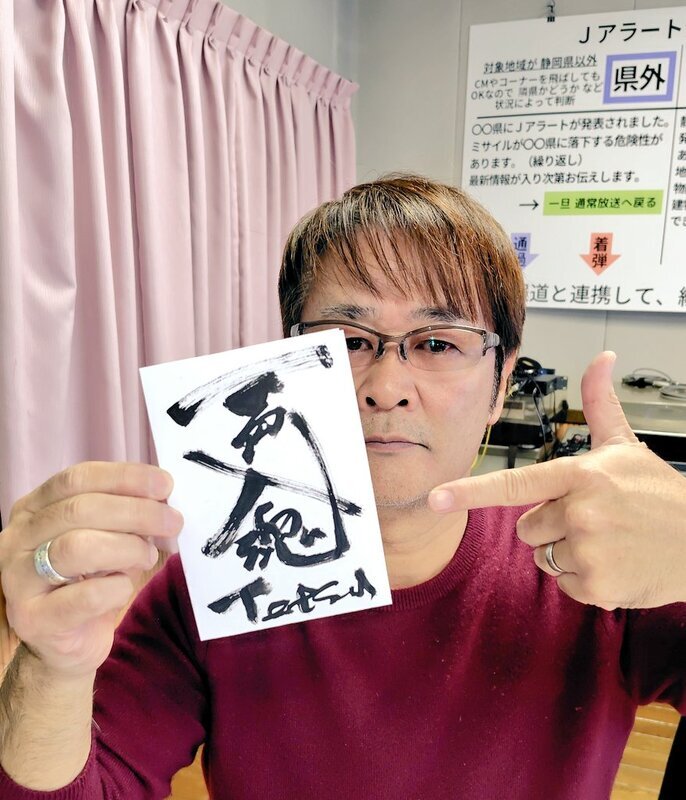 Jアラート
対象地域が 静岡県以外
CMやコーナーを飛ばしても
OKなので 隣県かどうか など
状況によって判断
県外
〇〇県にJアラートが発表されました。
ミサイルが〇〇県に落下する危険性が
あります。（繰り返し）
最新情報が入り次第お伝えします。
→ 一旦 通常放送へ戻る
通過
着弾
道と連携して、
一声入魂
Tatsu